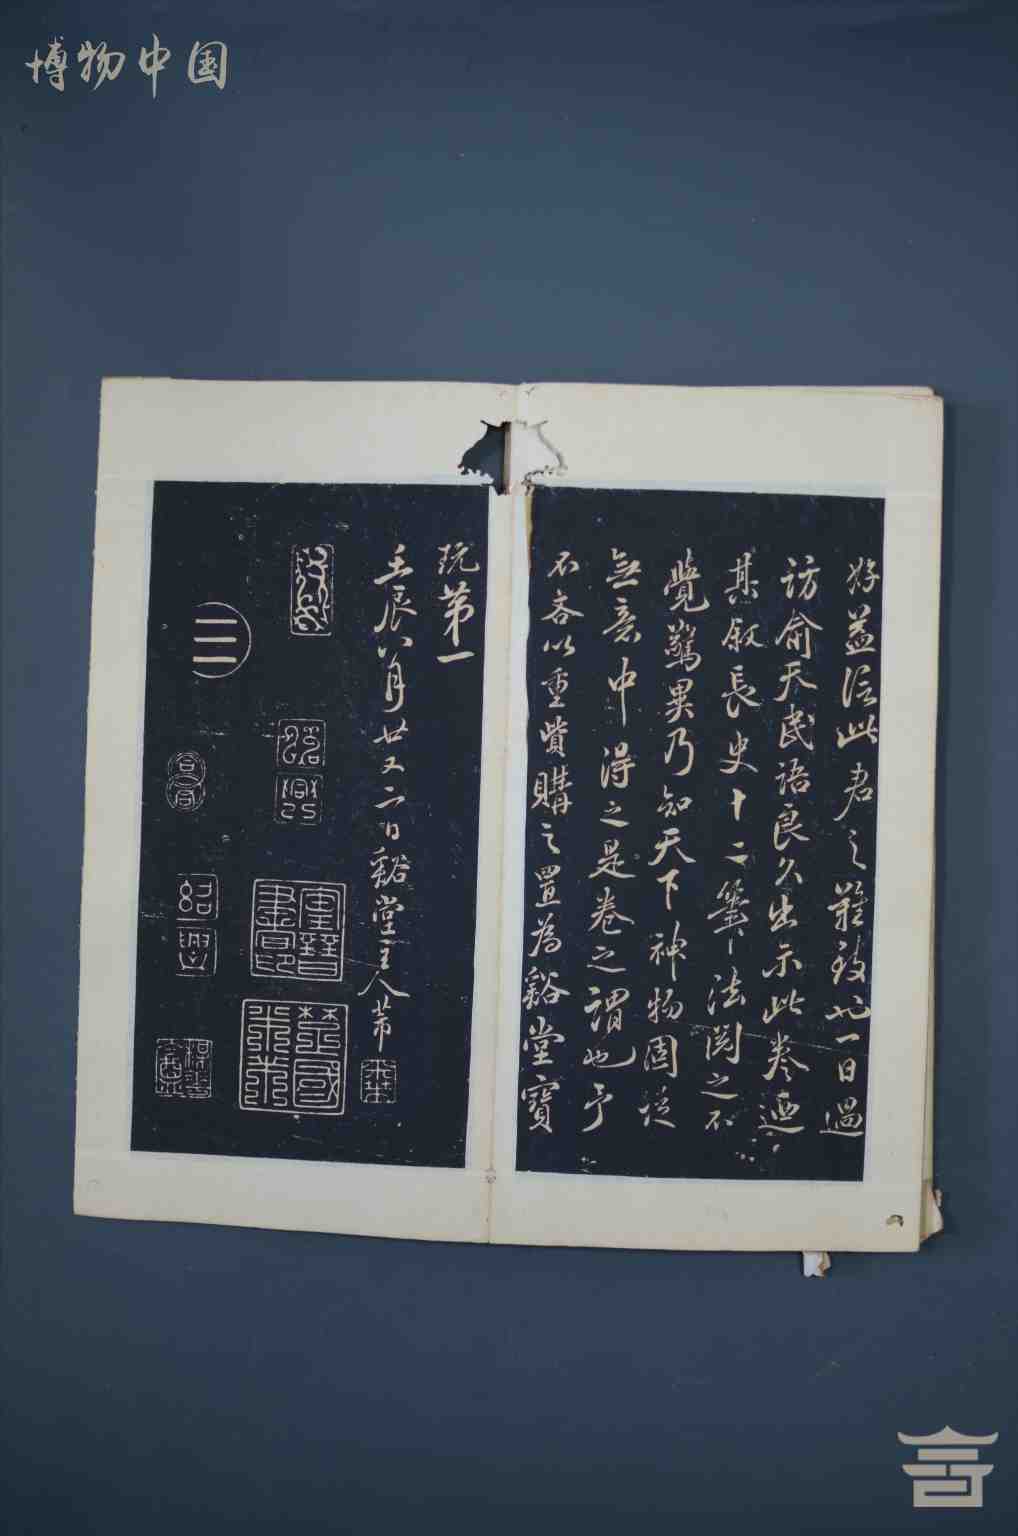 博物中国
好益信此君之難致也一日過
訪俞天民語良久出示此卷迺
其叙長史十二筆法閱之不
覺驚異乃知天下神物固從
無意中得之是卷之謂也予
不吝以重貲購之置為谿堂寶
玩第一
壬辰八月廿又二日谿堂主人芾
紹興
楚國米芾
紹興